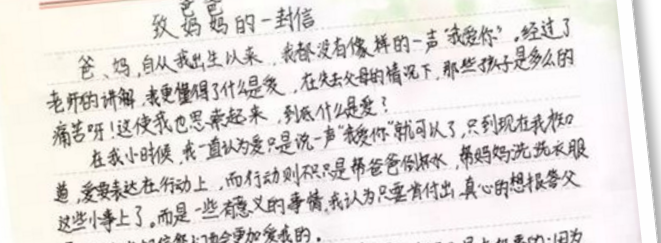 爸爸
致妈妈的一封信
爸、妈,自从我出生以来,我都没有像样的一声“我爱你”。经过了
老师的讲解,我更懂得了什么是爱,在失去父母的情况下,那些孩子是多么的
痛苦呀!这使我也思索起来,到底什么是爱?
在我小时候,我一直认为爱只是说一声“我爱你”就可以了,只到现在我
道,爱要表达在行动上,而行动则不只是帮爸爸倒杯水,帮妈妈洗洗衣服
这些小事上了。而是一些有意义的事情,我认为只要肯付出,真心的想报答父
会更加爱我的。